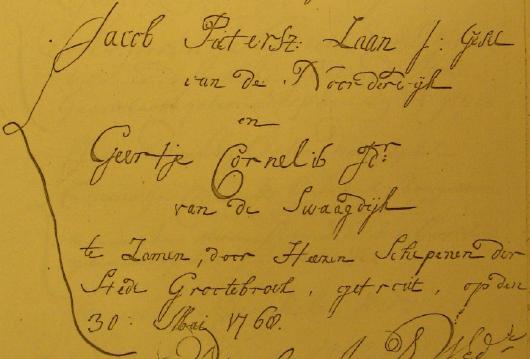 Jacob Pietersz: Laan J: Gesel
van de Noorderdijk
en
Geertje Cornelis Jdr
van de Swaagdijk
te Zamen, door Heeren Schepenen der
Stede Grootebroek, getrout, op den
30: Mai 1768.